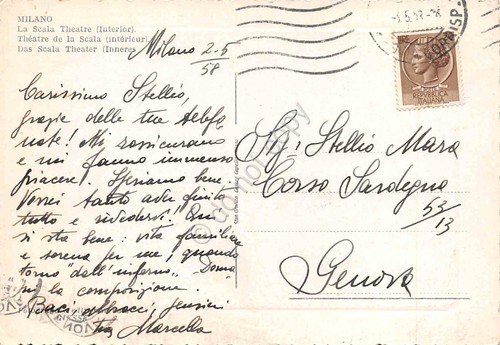 MILANO
La Scala Theatre (Interior).
Théatre de la Scala (intérieur).
Das Scala Theater (Inneres
Milano 2-5
58
Carissimo Stellio,
grazie delle tue telefo
nate! Mi rassicurano
e mi fanno immenso
piacere! Speriamo bene.
Vorrei tanto aver finito
tutto e rivedervi! Qui
si sta bene: vita familiare
e serena per me, quando
torno "dall'inferno".
la composizione.
Baci, abbracci,
tua Marcella
Sig. Stellio Mara
Corso Sardegna
53/13
Genova
ITALIANA